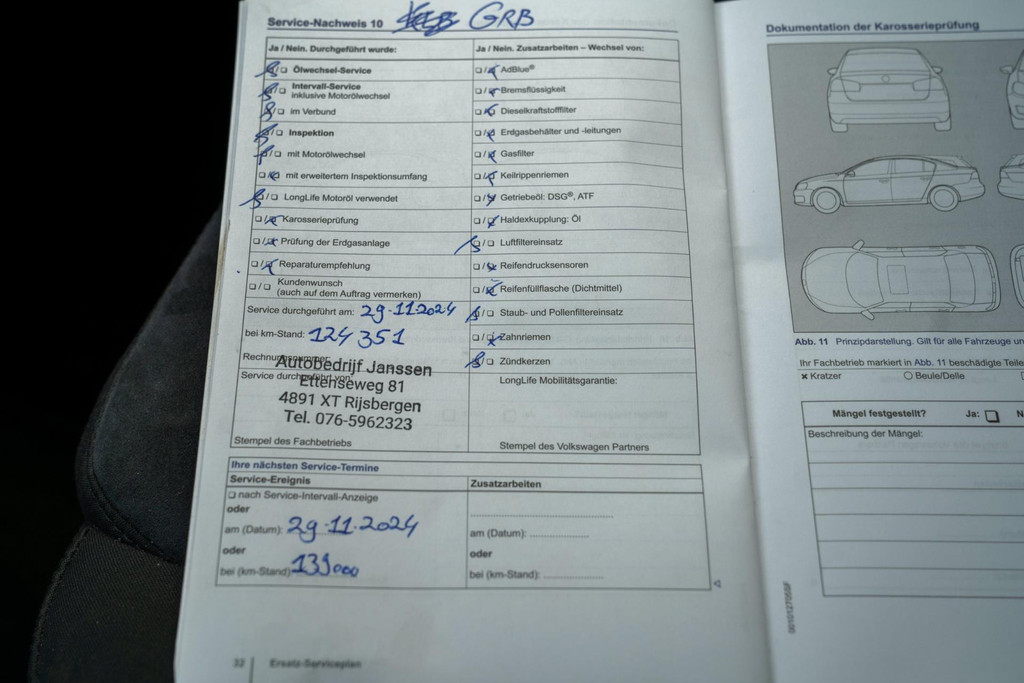 Service-Nachweis 10 GRB
Ja / Nein. Durchgeführt wurde:
Ölwechsel-Service
Intervall-Service
inklusive Motorölwechsel
im Verbund
Inspektion
mit Motorölwechsel
mit erweitertem Inspektionsumfang
LongLife Motoröl verwendet
Karosserieprüfung
Prüfung der Erdgasanlage
Reparaturempfehlung
Kundenwunsch
(auch auf dem Auftrag vermerken)
Service durchgeführt am: 29-11-2024
bei km-Stand: 124351
Autobedrijf Janssen
Service durchgeführt von:
Ettenseweg 81
4891 XT Rijsbergen
Tel. 076-5962323
Stempel des Fachbetriebs
Ja / Nein. Zusatzarbeiten – Wechsel von:
AdBlue®
Bremsflüssigkeit
Dieselkraftstofffilter
Erdgasbehälter und -leitungen
Gasfilter
Keilrippenriemen
Getriebeöl: DSG®, ATF
Haldexkupplung: Öl
Luftfiltereinsatz
Reifendrucksensoren
Reifenfüllflasche (Dichtmittel)
Staub- und Pollenfiltereinsatz
Zahnriemen
Zündkerzen
LongLife Mobilitätsgarantie:
Stempel des Volkswagen Partners
Ihre nächsten Service-Termine
Service-Ereignis
nach Service-Intervall-Anzeige
oder
am (Datum): 29-11-2024
oder
bei (km-Stand): 139000
Zusatzarbeiten
am (Datum):
oder
bei (km-Stand):
32 Ersatz-Serviceplan
Dokumentation der Karosserieprüfung
Abb. 11 Prinzipdarstellung. Gilt für alle Fahrzeuge
Ihr Fachbetrieb markiert in Abb. 11 beschädigte Teile
× Kratzer
Beule/Delle
Mängel festgestellt? Ja:
Beschreibung der Mängel: